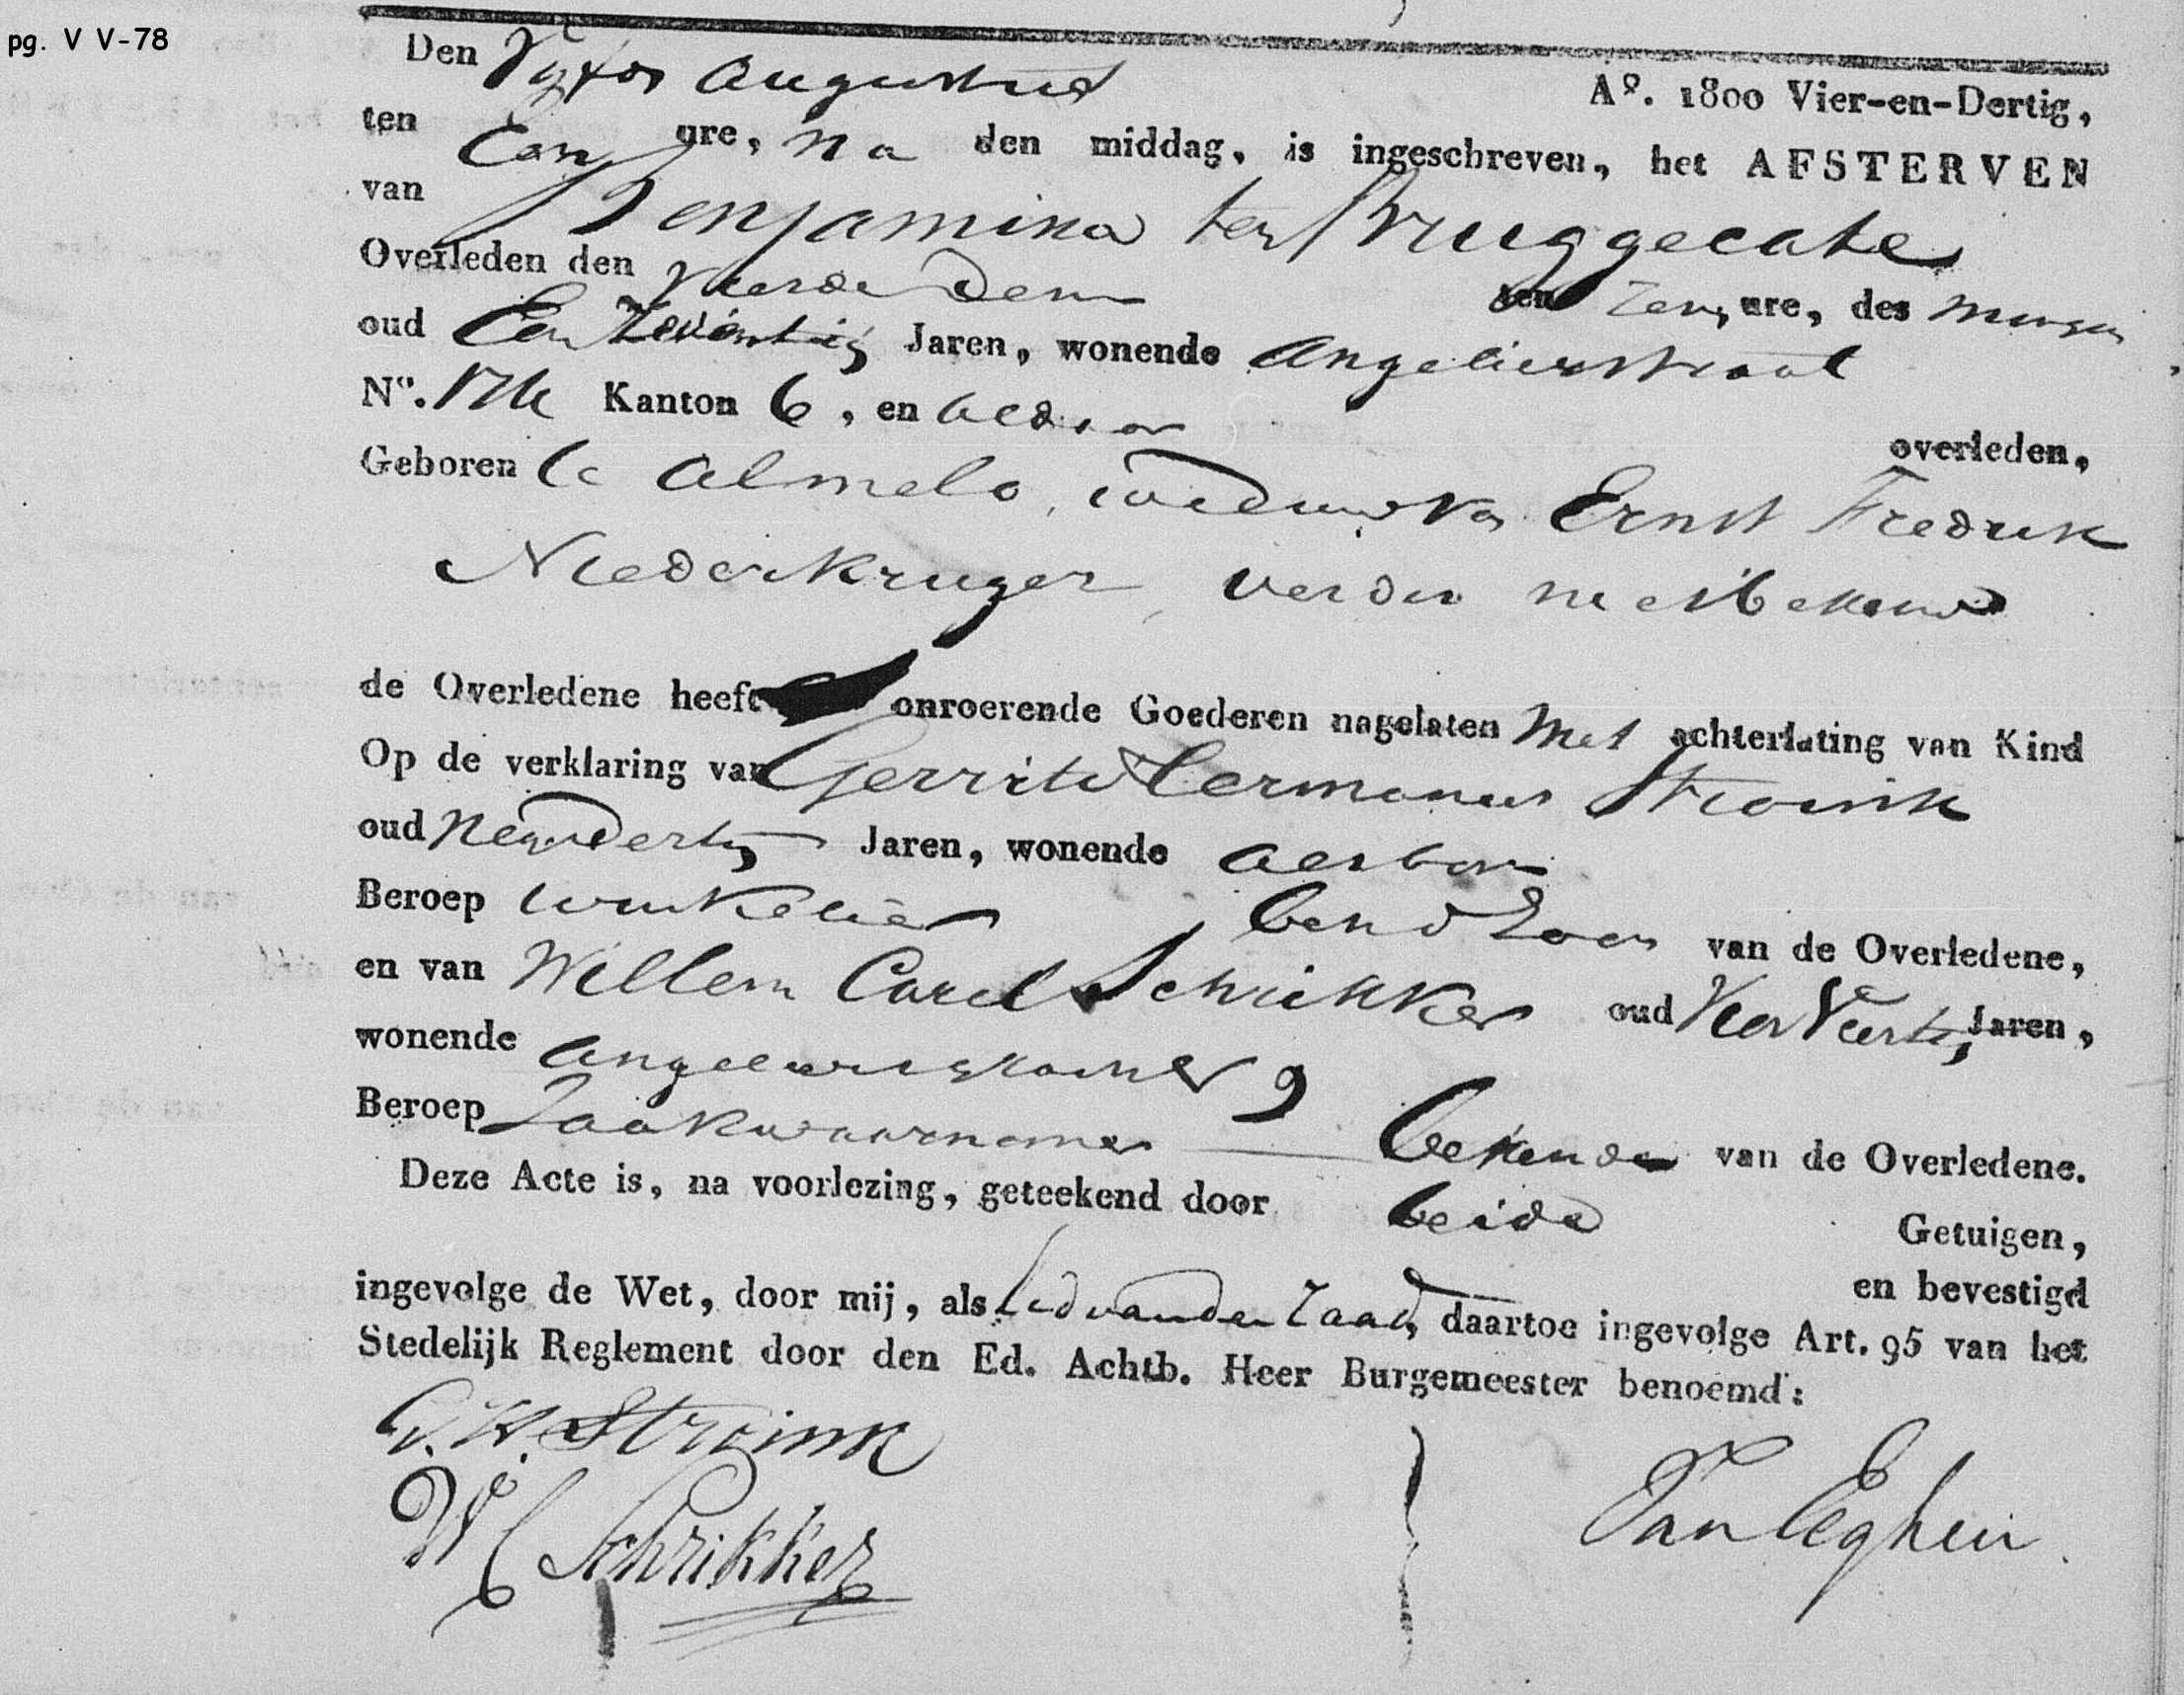 pg. V V-78
Den Vyfden Augustus A°. 1800 Vier-en-Dertig,
ten Een ure, Na den middag, is ingeschreven, het AFSTERVEN
van Benjamina ten Bruggecate
Overleden den Vierde dezer ten Tien ure, des Morgen
oud Een Zeventig Jaren, wonende Angelierstraat
N°. Kanton 6, en aldaar overleden,
Geboren te Almelo, weduwe van Ernst Fredrik
Niederkruger, verder niet bekend
de Overledene heeft onroerende Goederen nagelaten Met achterlating van Kind
Op de verklaring van Gerrit Hermanus Stroink
oud Neg. Dertig Jaren, wonende
Beroep Winkelier, Behd Zoon van de Overledene,
en van Willem Carel Schrikker oud Vier Veertig Jaren,
wonende
Beroep Zaakwaarnemer Bekende van de Overledene.
Deze Acte is, na voorlezing, geteekend door beide Getuigen,
en bevestigd
ingevolge de Wet, door mij, als Lid van den Raad, daartoe ingevolge Art. 95 van het
Stedelijk Reglement door den Ed. Achtb. Heer Burgemeester benoemd:
G. H. Stroink
W C Schrikker
Van Eeghen